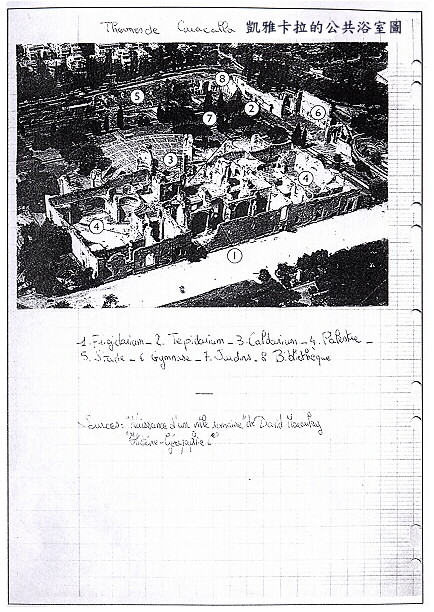 Thermes de Caracalla 凱雅卡拉的公共浴室圖
8
5
2
6
7
3
4
4
1
1. Frigidarium _ 2. Tepidarium _ 3. Caldarium _ 4. Palestre _
5. Stade _ 6 Gymnase _ 7. Jardins _ 8 Bibliothèque
Sources: "Naissance d'une ville romaine" de David
"Histoire-Géographie 6e"